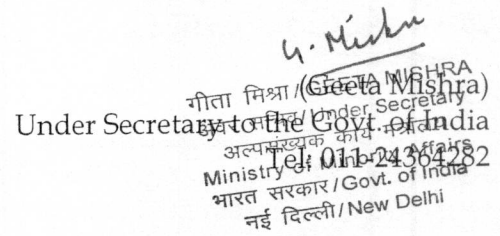 G. Mishra
(Geeta Mishra)
Under Secretary to the Govt. of India
Tel: 011-24364282
गीता मिश्रा / GEETA MISHRA
अवर सचिव / Under Secretary
अल्पसंख्यक कार्य मंत्रालय
Ministry of Minority Affairs
भारत सरकार / Govt. of India
नई दिल्ली / New Delhi